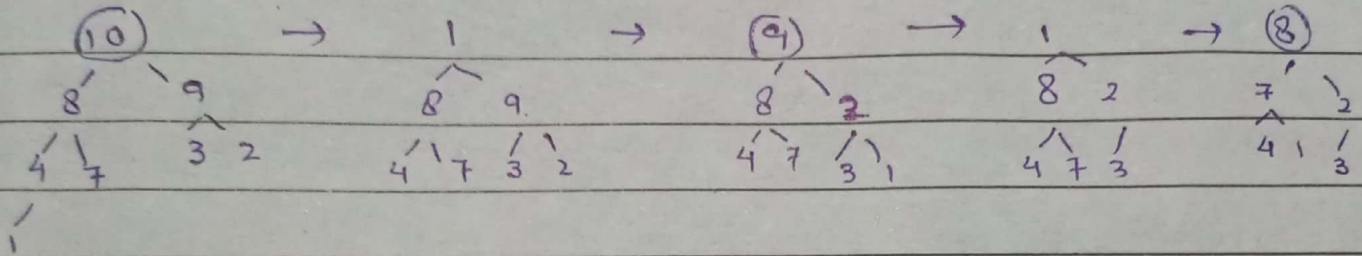 10 → 1 → 9 → 1 → 8
8 9 8 9 8 2 8 2 7 2
4 7 3 2 4 7 3 2 4 7 3 1 4 7 3 4 1 3
1